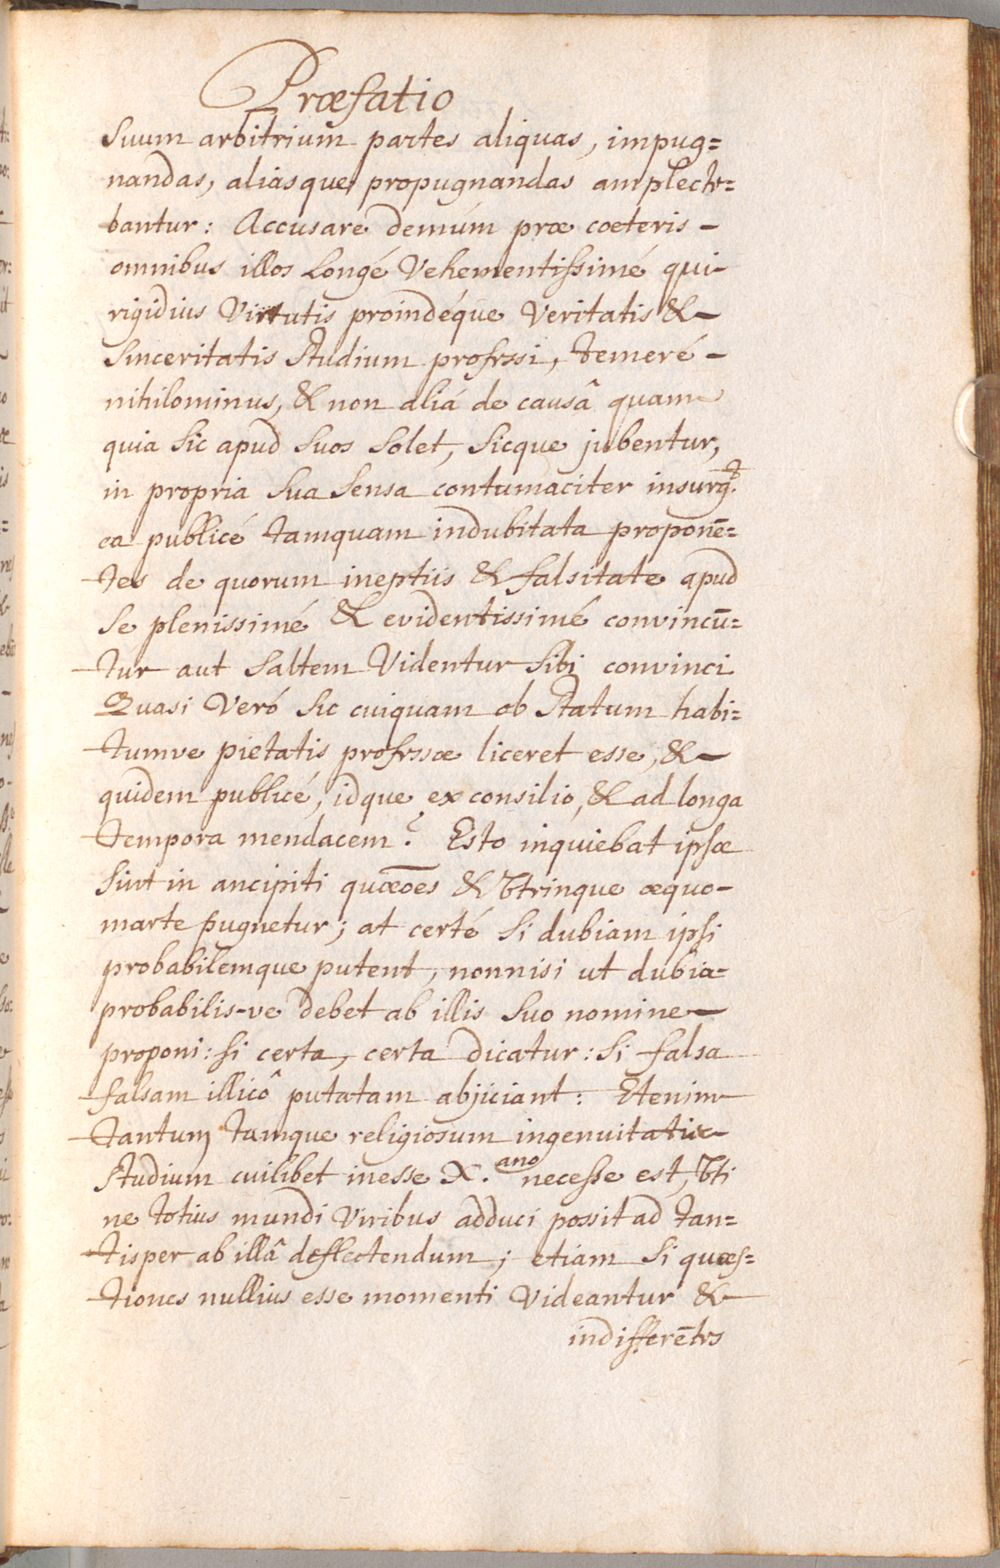 Præfatio
Suum arbitrium partes aliquas, impug=
nandas, aliasque propugnandas amplecte=
bantur: Accusare demúm præ cœteris -
omnibus illos Longé Vehementissimé qui-
rigidius Virtutis proindéque Veritatis & -
Sinceritatis Studium professi, temeré -
nihilominus, & non aliá de causâ quam
quia Sic apud Suos Solet, Sicque jubentur,
in propria Sua Sensa contumaciter insurg.t
ea publicé tamquam indubitata proponē=
tes de quorum ineptiis & falsitate apud
Se plenissimé & evidentissimé convincū=
tur aut Saltem Videntur Sibi convinci
Quasi Veró Sic cuiquam ob Statum habi=
tumve pietatis professæ liceret esse, & -
quidem publicé, idque ex consilio, & ad longa
tempora mendacem? Esto inquiebat ipsæ
Sint in ancipiti quæōes & Utrinque æquo-
marte pugnetur; at certé Si dubiam ipsi
probabilemque putent, nonnisi ut dubia-
probabilis-ve debet ab illis Suo nomine -
proponi: Si certa, certa dicatur: Si falsa
falsam illicô putatam abjiciant: Etenim
tantum tamque religiosum ingenuitatis -
Studium cuilibet inesse X.ano necesse est, Uti
ne totius mundi Viribus adduci possit ad tan=
tisper ab illâ deflectendum; etiam Si quæs=
tiones nullius esse momenti Videantur & -
indifferētes